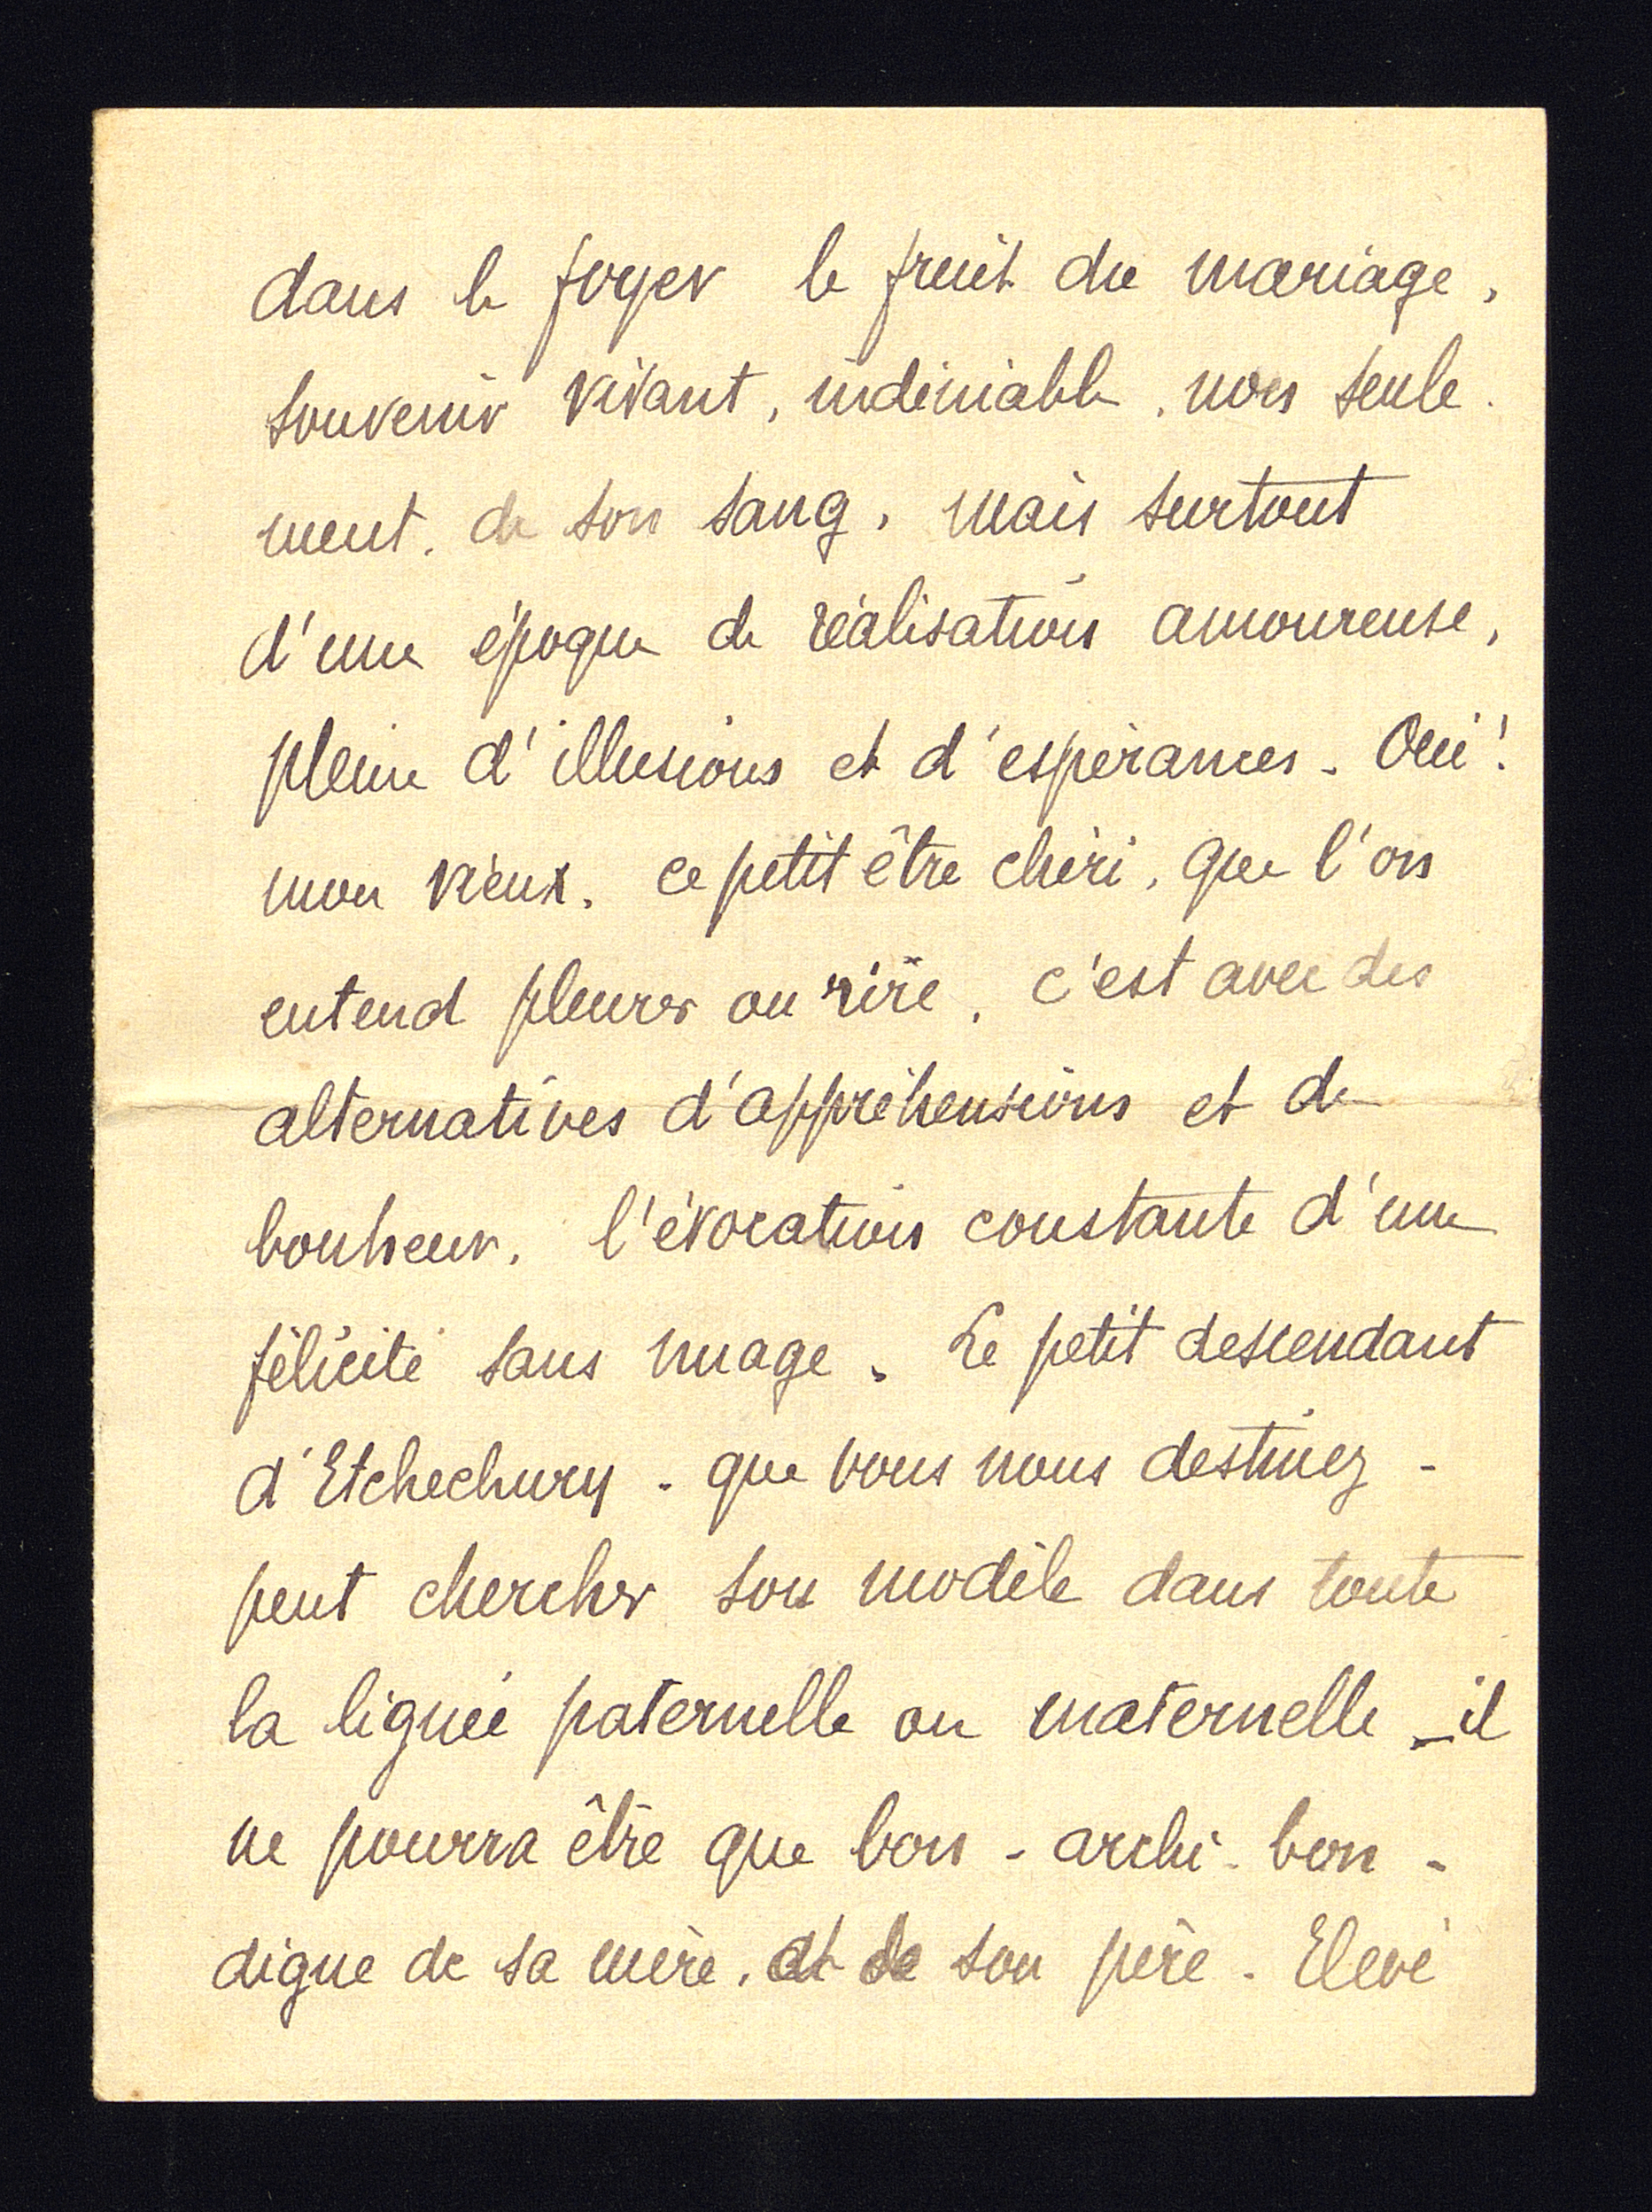 dans le foyer le fruit du mariage,
souvenir vivant, indéniable, non seule-
ment, de son sang, mais surtout
d'une époque de réalisation amoureuse,
pleine d'illusions et d'espérances - Oui!
mon vieux, ce petit être chéri, que l'on
entend pleurer ou rire, c'est avec des
alternatives d'appréhensions et de
bonheur, l'évocation constante d'une
félicité sans nuage. Le petit descendant
d'Etchechury - que vous nous destinez -
peut chercher son modèle dans toute
la lignée paternelle ou maternelle - il
ne pourra être que bon - archi-bon -
digne de sa mère, et de son père - Elevé